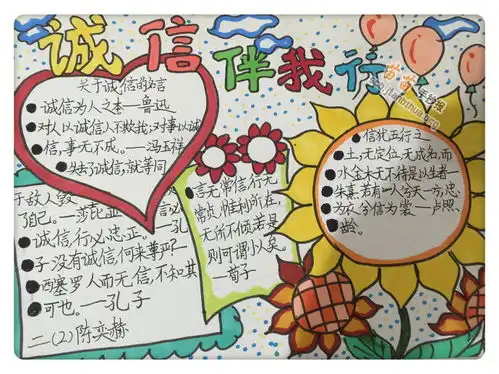 诚信伴我行
关于诚信的名言
诚信为人之本—鲁迅
对人以诚信人不欺我;对事以诚
信,事无不成。—冯玉祥
失去了诚信,就等同
于敌人毁
了自己。—莎士比亚
言必
诚信,行必忠正。—孔
子没有诚信,何来尊严?
西塞罗人而无信,不知其
可也。—孔子
二(2)陈奕赫
言无常信,行无
常贞,惟利所在,
无所不倾,若是
则可谓小人矣。
—荀子
信犹五行之
土,无定位,无成名,而
水金木无不待是以生者—
朱熹.若有一个兮天一方,忠
为衣兮信为裳—卢照
龄。